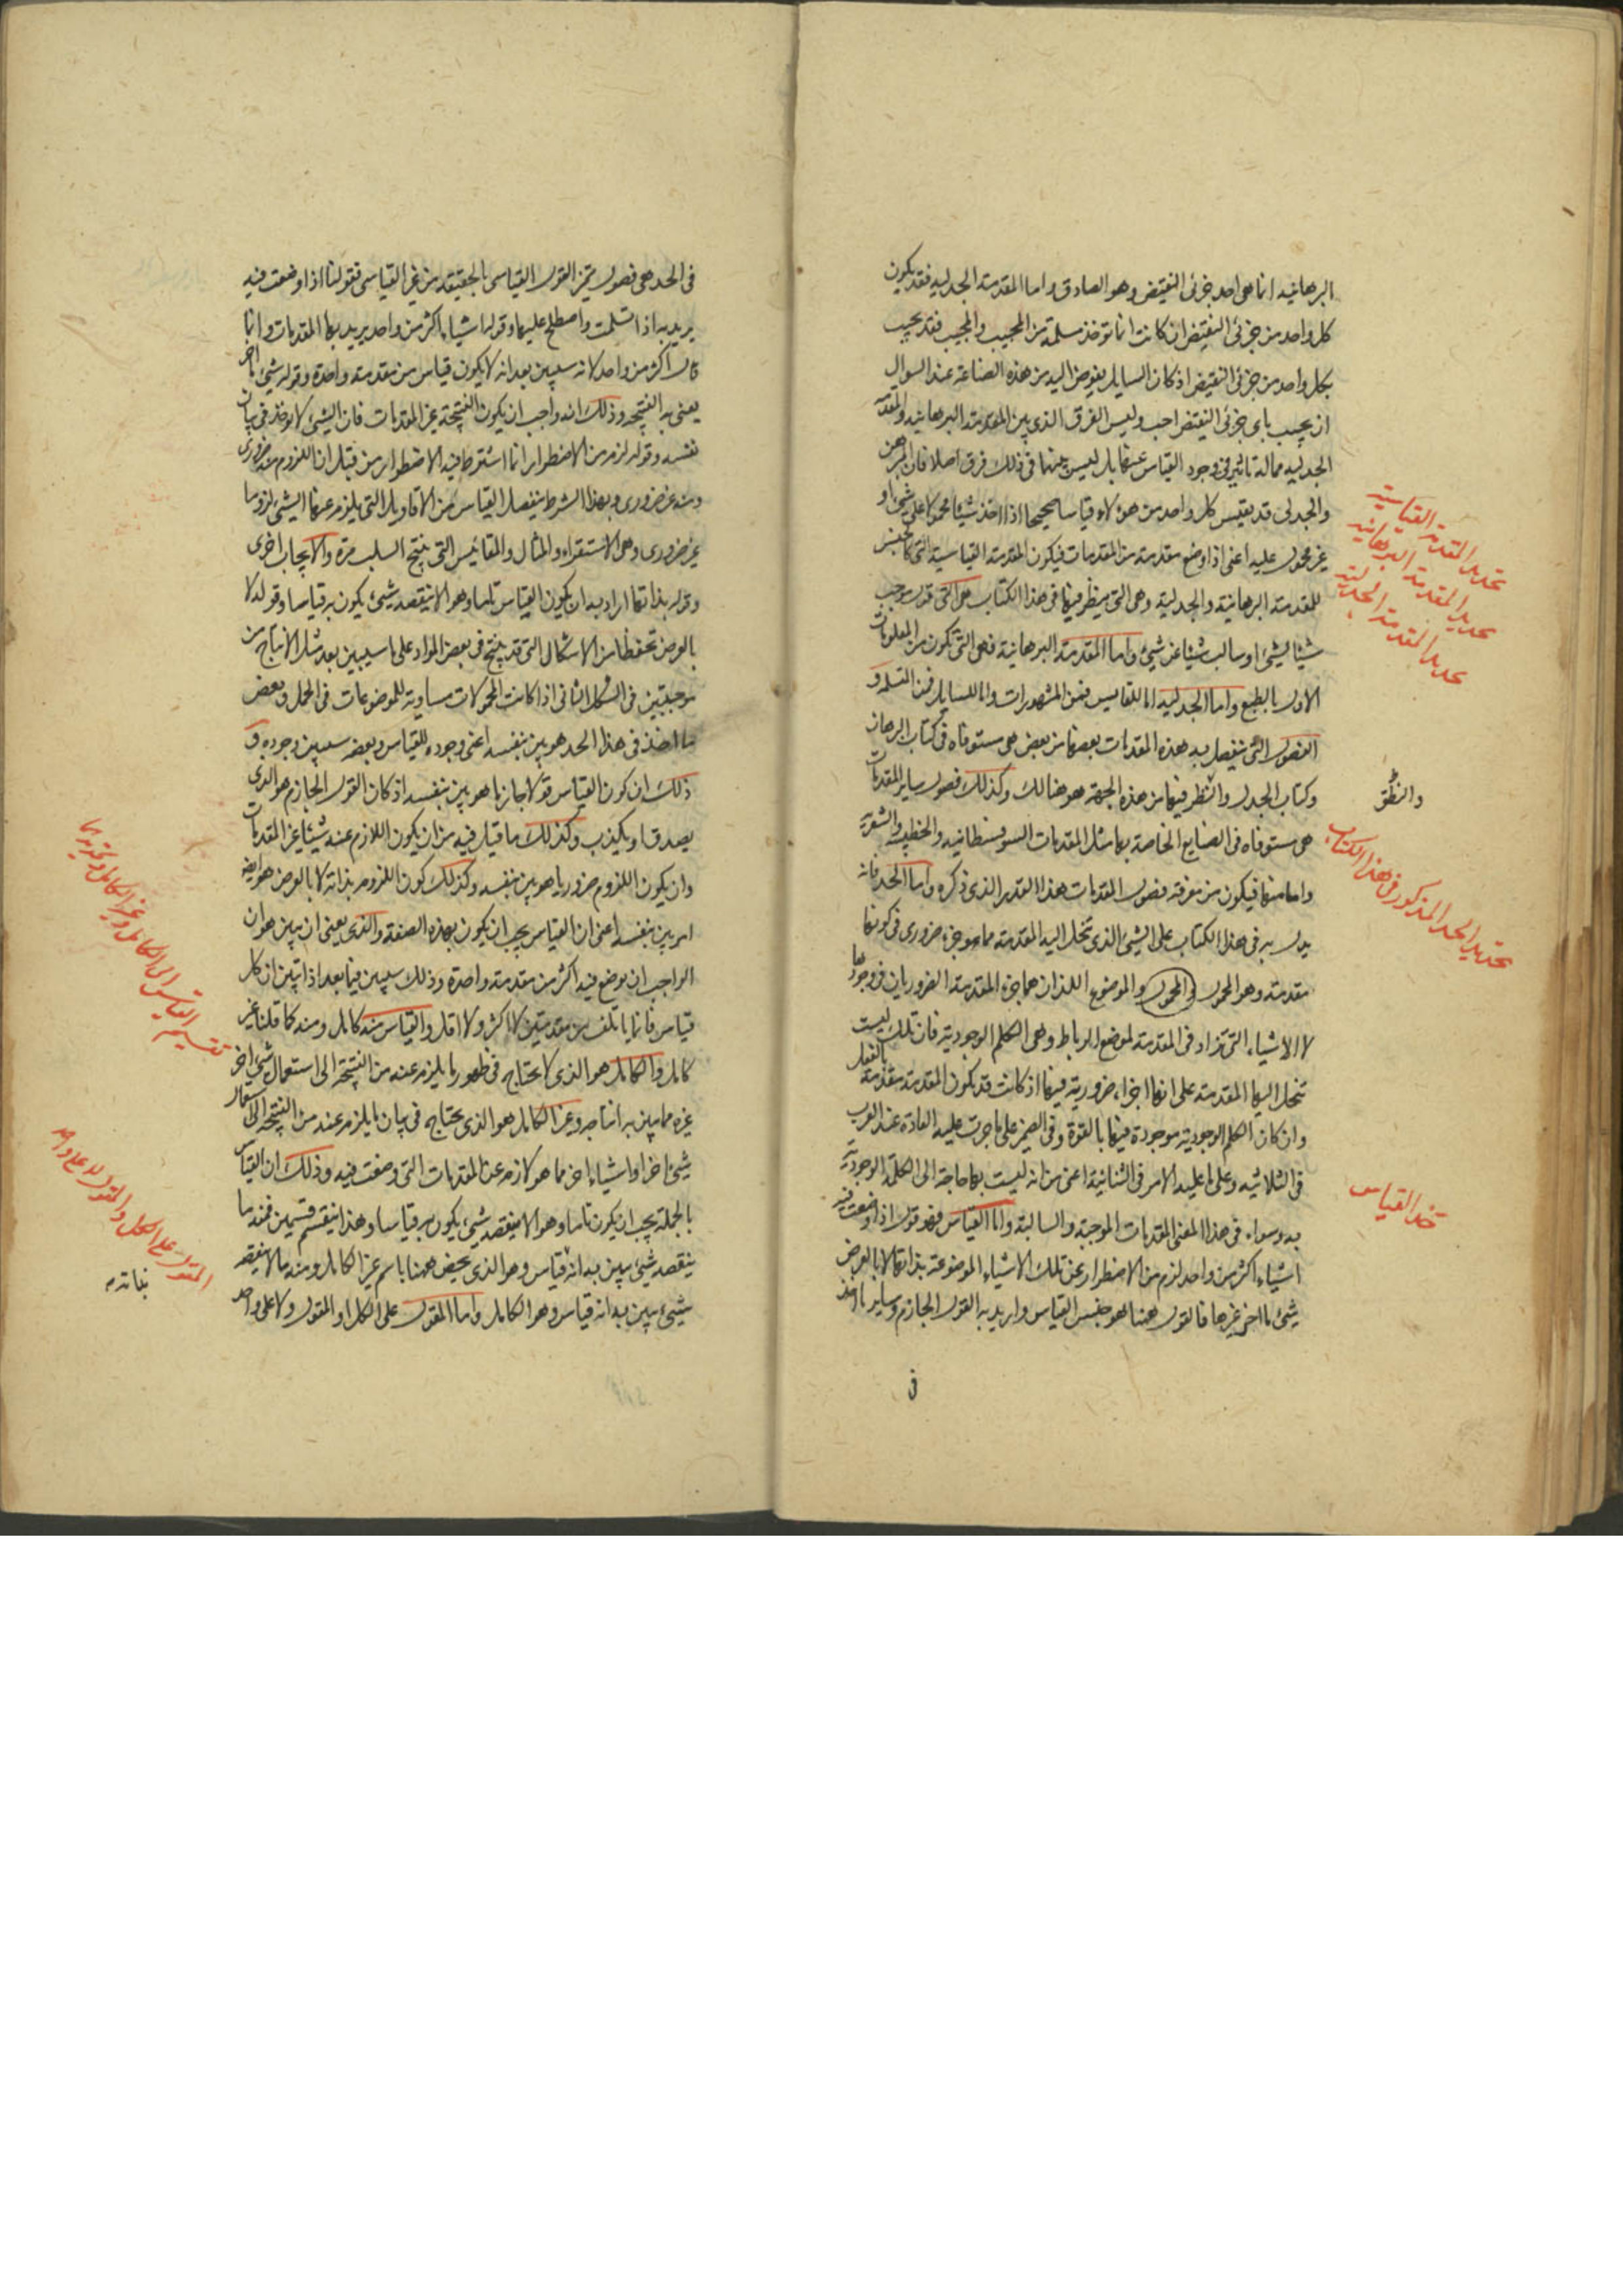 البرهانيه انما هى احد جزئى النقيض وهو الصادق واما المقدمة الجدليه فقد يكون
كل واحد من جزئى النقيض ان كانت انما توخذ مسلمة من المجيب والمجيب فقد يجيب
بكل واحد من جزئى النقيض اذ كان السايل يفوض اليه من هذه الصناعة عند السوال
ان يجيب باى جزئى النقيض احب وليس الفرق الذى بين المقدمة البرهانيه والمقدمة
الجدليه مماله تاثير فى وجود القياس عنها بل ليس بينهما فى ذلك فرق اصلا فان المبرهن
والجدلى قد يقيس كل واحد من هولاء قياسا صحيحا اذا اخذ شيئا محمولا على شىء او
غير محمول عليه اعنى اذا وضع مقدمة من المقدمات فيكون المقدمة القياسية التى كالجنس
للمقدمة البرهانية والجدلية وهى التى ينظر فيها فى هذا الكتاب هى التى قول موجب
شيئا لشىء او سالب شيئا عن شىء واما المقدمة البرهانية فهى التى تكون من المعلومات
الاول بالطبع واما الجدليه اما للقايس فمن المشهورات واما للسايل فمن التسلم و
الفصول التى ينفصل بها هذه المقدمات بعضها من بعض هى مستوفاه فى كتاب البرهان
وكتاب الجدل والنظر فيها من هذه الجهة هو هنالك وكذلك فصول ساير المقدمات
هى مستوفاه فى الصنايع الخاصة بها مثل المقدمات السوفسطانيه والخطبيه والشعرية
واما منها فيكون من معرفة فصول المقدمات هذا القدر الذى ذكره واما الحد فانه
يدل به فى هذا الكتاب على الشىء الذى تنحل اليه المقدمة مما هو جزء ضرورى فى كونها
مقدمة وهو المحمول والمحمول والموضوع اللذان هما جزء المقدمة الضروريان فى وجودها
لا الاشياء التى تزاد فى المقدمة لموضع الرباط وهى الكلم الوجودية فان تلك ليست
تنحل اليها المقدمة على انها اجزاء ضرورية فيها اذ كانت قد يكون المقدمة مقدمة بالفعل
وان كان الكلم الوجودية موجودة فيها بالقوة وفى الضمير على ما جرت عليه العادة عند العرب
فى الثلاثيه وعلى ما عليه الامر فى الثنائية اعنى من انه ليست بها حاجة الى الكلمة الوجودية
به وسواء فى هذا المعنى المقدمات الموجبة والسالبة واما القياس فهو قول اذا وضعت فيه
اشياء اكثر من واحد لزم من الاضطرار عن تلك الاشياء الموضوعة بذاتها لا بالعرض
شىء ما اخر غيرها فالقول ههنا هو جنس القياس واريد به القول الجازم وساير ما اخذ
فى
تحديد المقدمة القياسية
تحديد المقدمة البرهانية
تحديد المقدمة الجدلية
والنظر
تحديد الحد المذكور فى هذا الكتاب
حد القياس
فى الحد هى فصول تميز القول القياسى بالحقيقه من غير القياسى فقولنا اذا وضعت فيه
يريد به اذا تسلمت واصطلح عليها وقوله اشياء اكثر من واحد يريد بها المقدمات وانما
قال اكثر من واحد لانه سيبين بعد انه لا يكون قياس من مقدمة واحدة وقوله شىء اخر
يعنى به النتيجه وذلك انه واجب ان يكون النتيجة غير المقدمات فان الشىء لا يوخذ فى بيان
نفسه وقوله لزم من الاضطرار انما اشترط فيه الاضطرار من قبل ان اللزوم منه ضرورى
ومنه غير ضرورى وبهذا الشرط ينفصل القياس من الاقاويل التى يلزم عنها الشىء لزوما
غير ضرورى وهى الاستقراء والمثال والمقائيس التى ينتج السلب مرة والايجاب اخرى
وقوله بذاتها اراد به ان يكون القياس تاما وهو الا ينقصه شىء يكون به قياسا وقوله لا
بالعرض تحفظا من الاشكال التى قد ينتج فى بعض المواد على ما سيبين بعد مثل الانتاج من
موجبتين فى الشكل الثانى اذا كانت المحمولات مساوية للموضوعات فى الحمل وبعض
ما اخذ فى هذا الحد هو بين بنفسه اعنى وجوده للقياس وبعضه سيبين وجوده و
ذلك ان كون القياس قولا جازما هو بين بنفسه اذ كان القول الجازم هو الذى
يصدق او يكذب وكذلك ما قيل فيه من ان يكون اللازم عنه شيئا غير المقدمات
وان يكون اللزوم ضروريا هو بين بنفسه وكذلك كون اللزوم بذاته لا بالعرض هو ايضا
امر بين بنفسه اعنى ان القياس يجب ان يكون بهذه الصفة والذى يعنى ان يبين هو ان
الواجب ان يوضع فيه اكثر من مقدمة واحدة وذلك سيبين فيما بعد اذا تبين ان كل
قياس فانما ياتلف من مقدمتين لا اكثر ولا اقل والقياس منه كامل ومنه كما قلنا غير
كامل والكامل هو الذى لا يحتاج فى ظهور ما يلزم عنه من النتيجة الى استعمال شىء اخر
غيره مما يبين به انتاجه وغير الكامل هو الذى يحتاج فى بيان ما يلزم عنه من النتيجه الى استعمال
شىء اخر او اشياء اخر مما هو لازمه عن المقدمات التى وضعت فيه وذلك ان القياس
بالجملة يجب ان يكون تاما وهو الا ينقصه شىء يكون به قياسا وهذا ينقسم قسمين فمنه ما
ينقصه شىء يبين به انه قياس وهو الذى يخص ههنا باسم غير الكامل ومنه ما لا ينقصه
شىء يبين به انه قياس وهو الكامل واما المقول على الكل او المقول ولا على واحد
تقسيم القياس الى الكامل وغير الكامل وتحديدهما
المقول على الكل والمقول لا على واحد